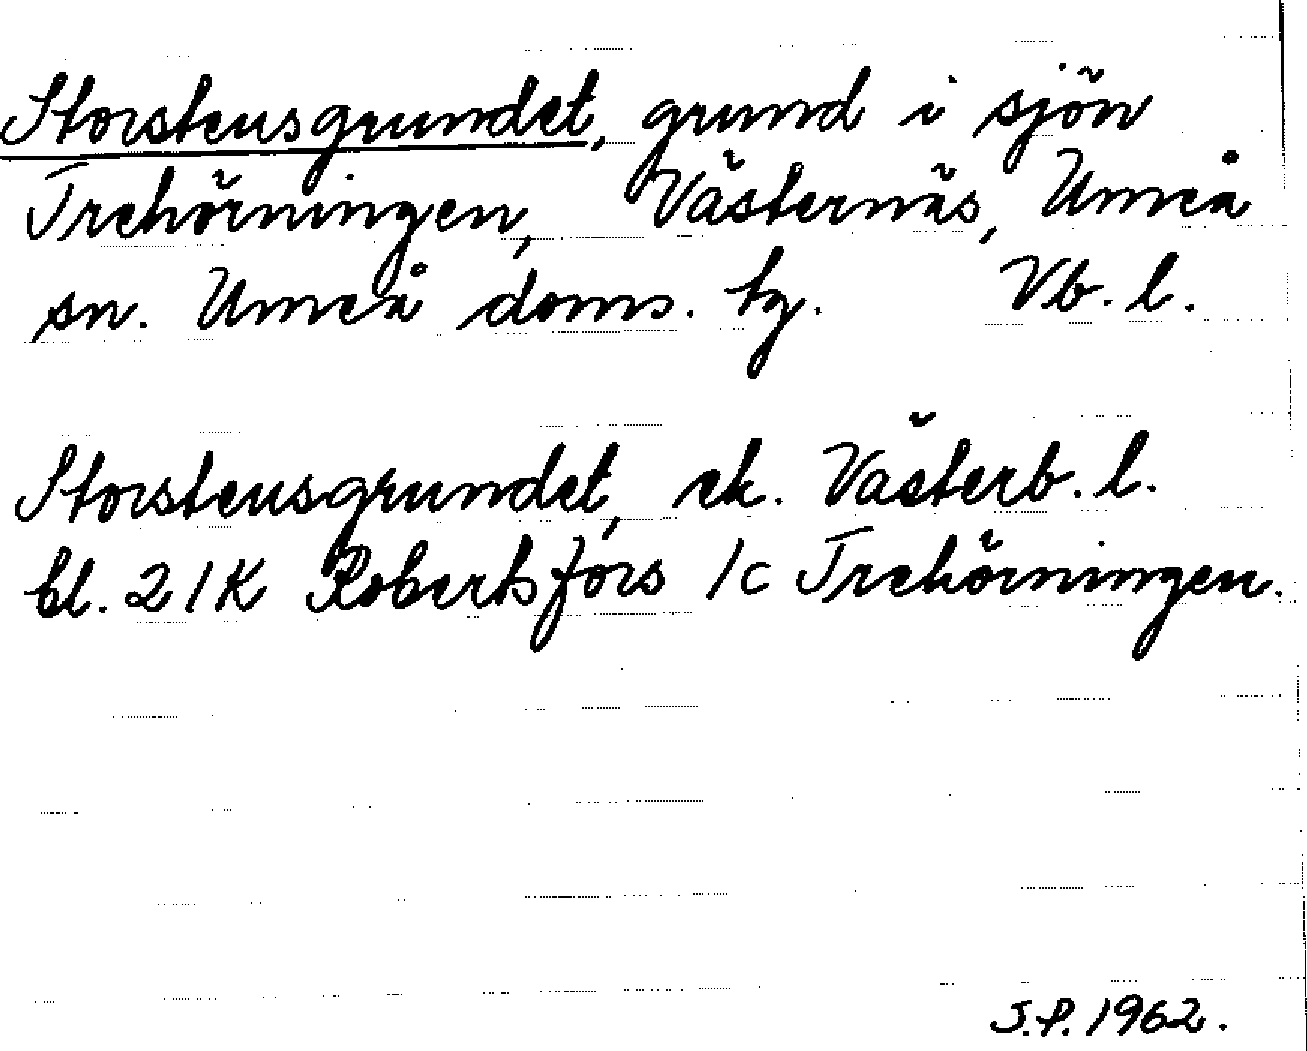 Storstensgrundet, grund i sjön
Trehörningen, Västernäs, Umeå
sn. Umeå doms. tg. Vb. l.
Storstensgrundet, ek. Västerb. l.
bl. 21K Robertsfors 1c Trehörningen.
J.P. 1962.